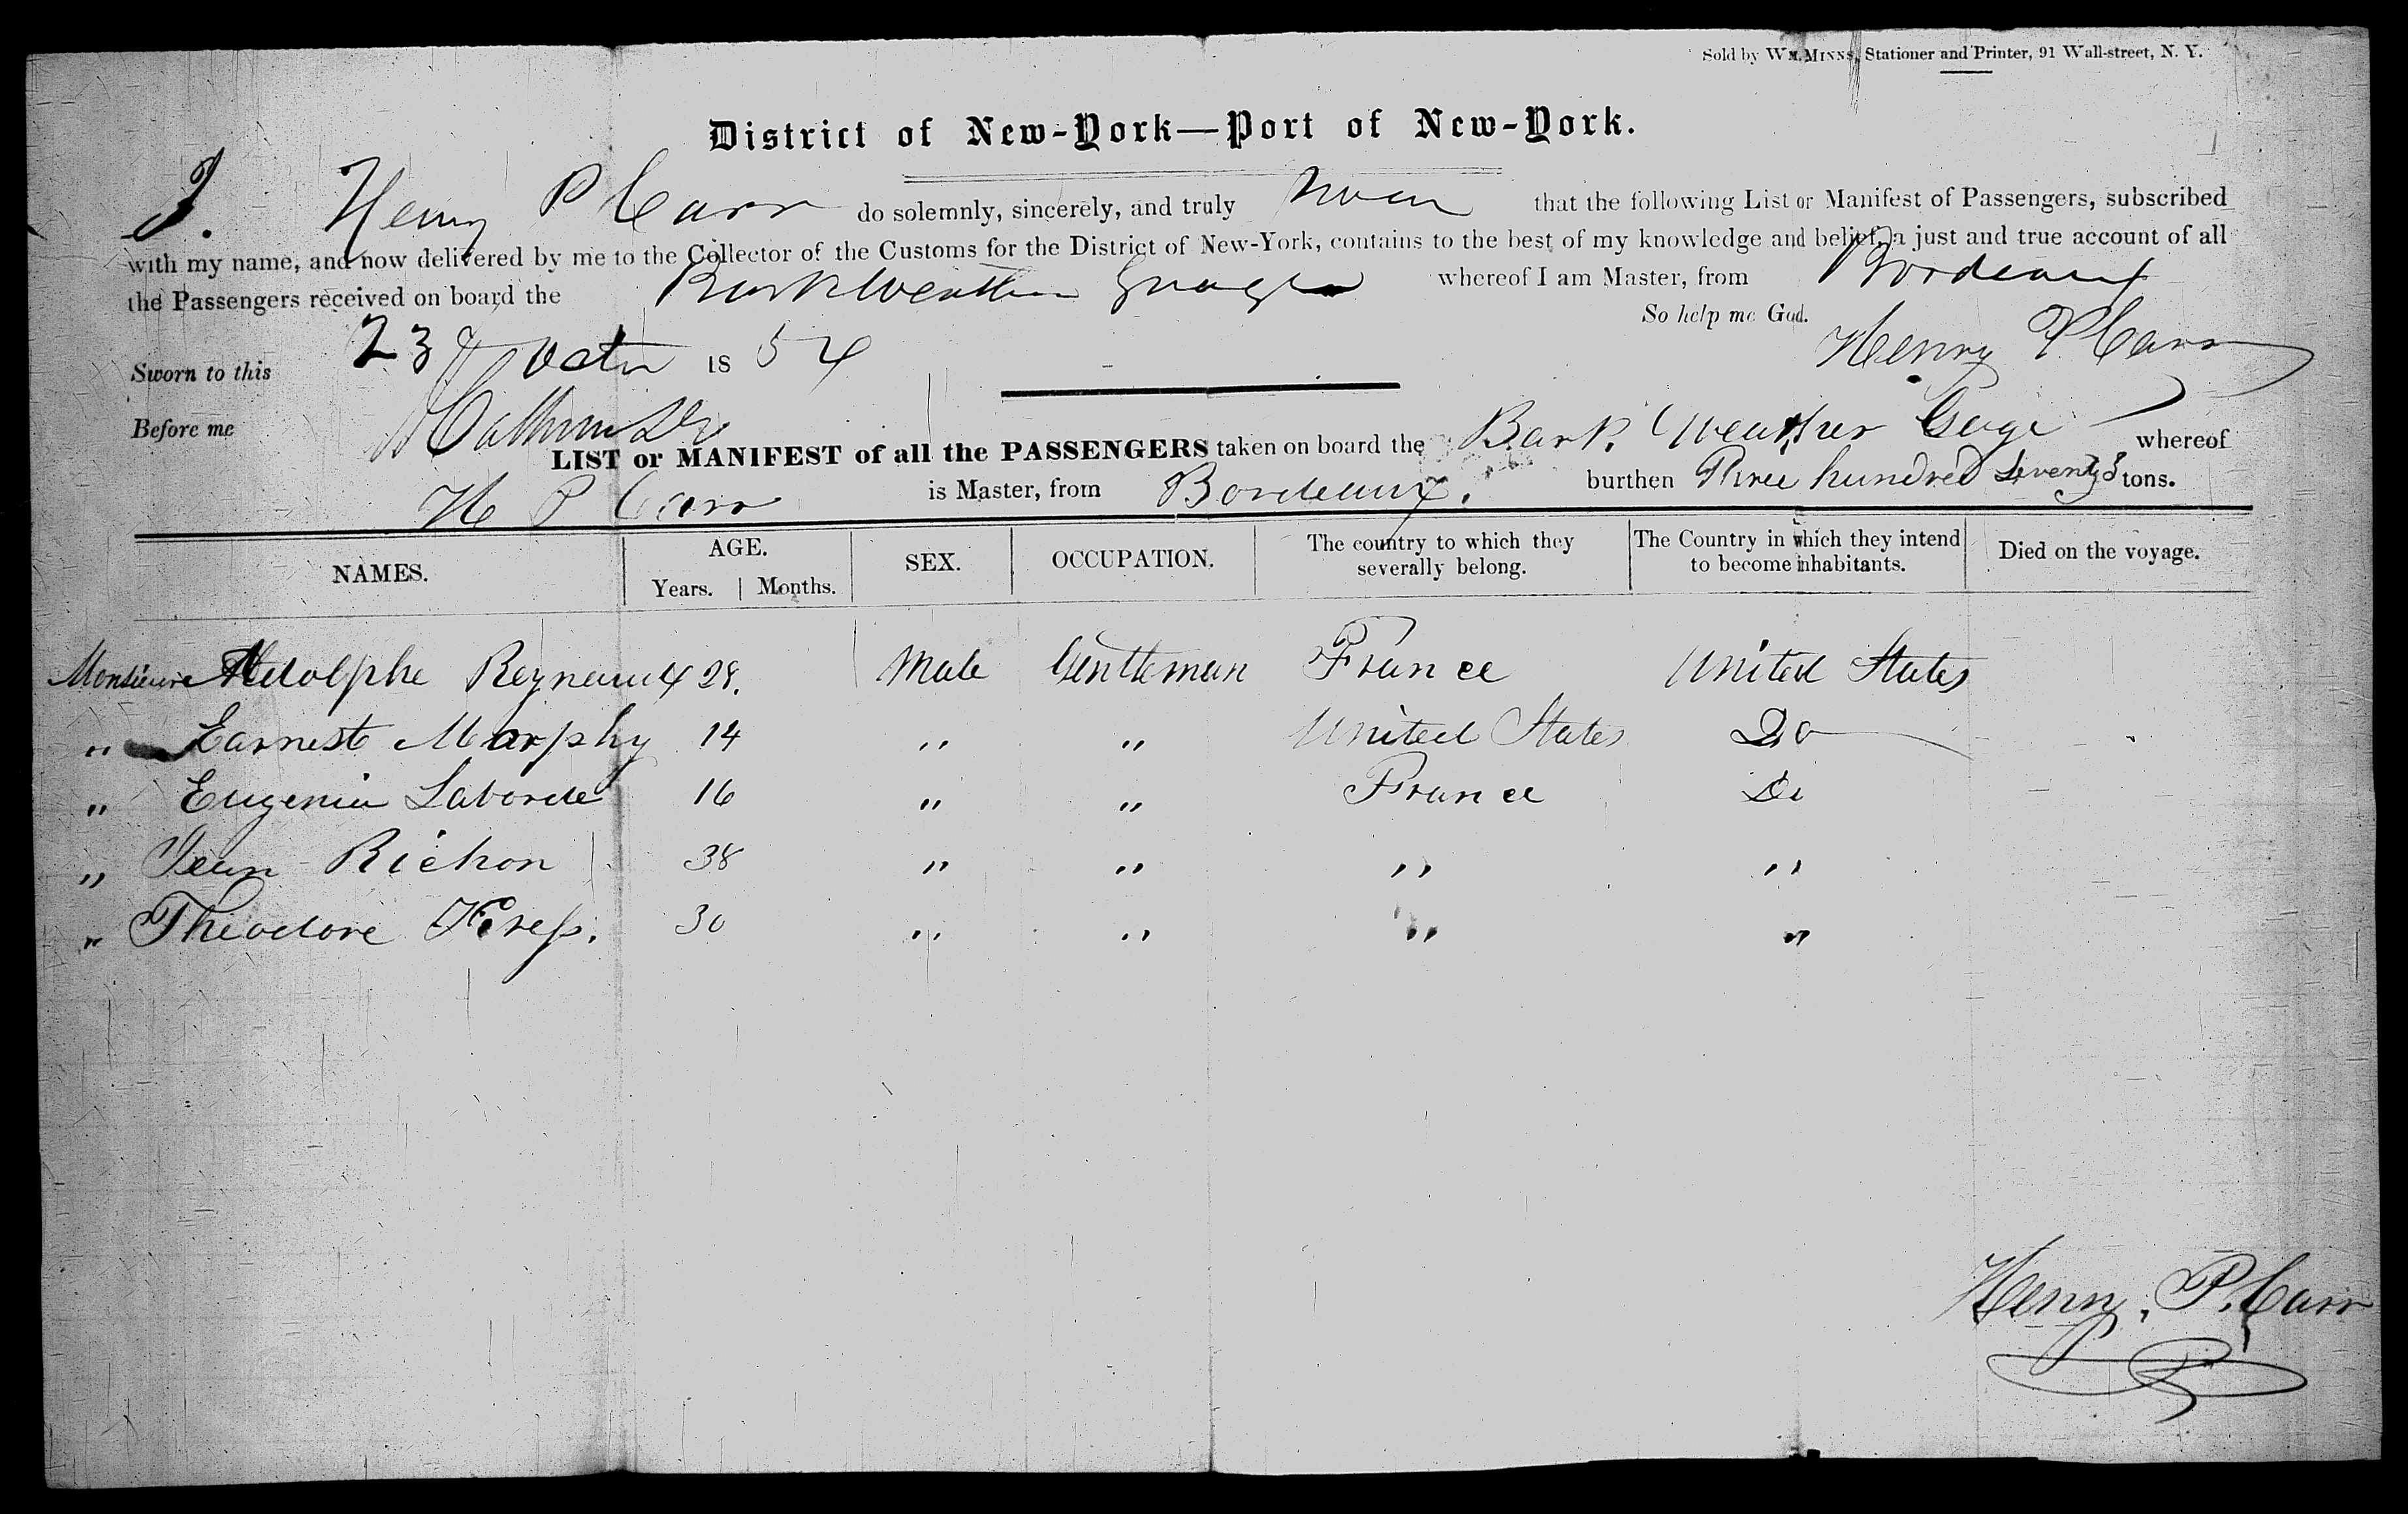 Sold by WM. MINNS, Stationer and Printer, 91 Wall-street, N. Y.
District of New-York—Port of New-York.
I. Henry P Carr do solemnly, sincerely, and truly swear that the following List or Manifest of Passengers, subscribed
with my name, and now delivered by me to the Collector of the Customs for the District of New-York, contains to the best of my knowledge and belief, a just and true account of all
the Passengers received on board the Bark Weather Guage whereof I am Master, from Bordeaux
So help me God.
Sworn to this 23 Octr 1854 Henry P. Carr
Before me
LIST or MANIFEST of all the PASSENGERS taken on board the Bark Weather Gage whereof
H P Carr is Master, from Bordeaux. burthen Three hundred Seventy 3 tons.
NAMES. AGE. Years. Months. SEX. OCCUPATION. The country to which they severally belong. The Country in which they intend to become inhabitants. Died on the voyage.
Monsieure Adolphe Reynaux 28. Male Gentleman France United States
" Earnest Morphy 14 " " United States Do
" Eugenia Laborde 16 " " France Do
" Jean Richon 38 " " " "
" Theodore Kress. 30 " " " "
Henry. P. Carr